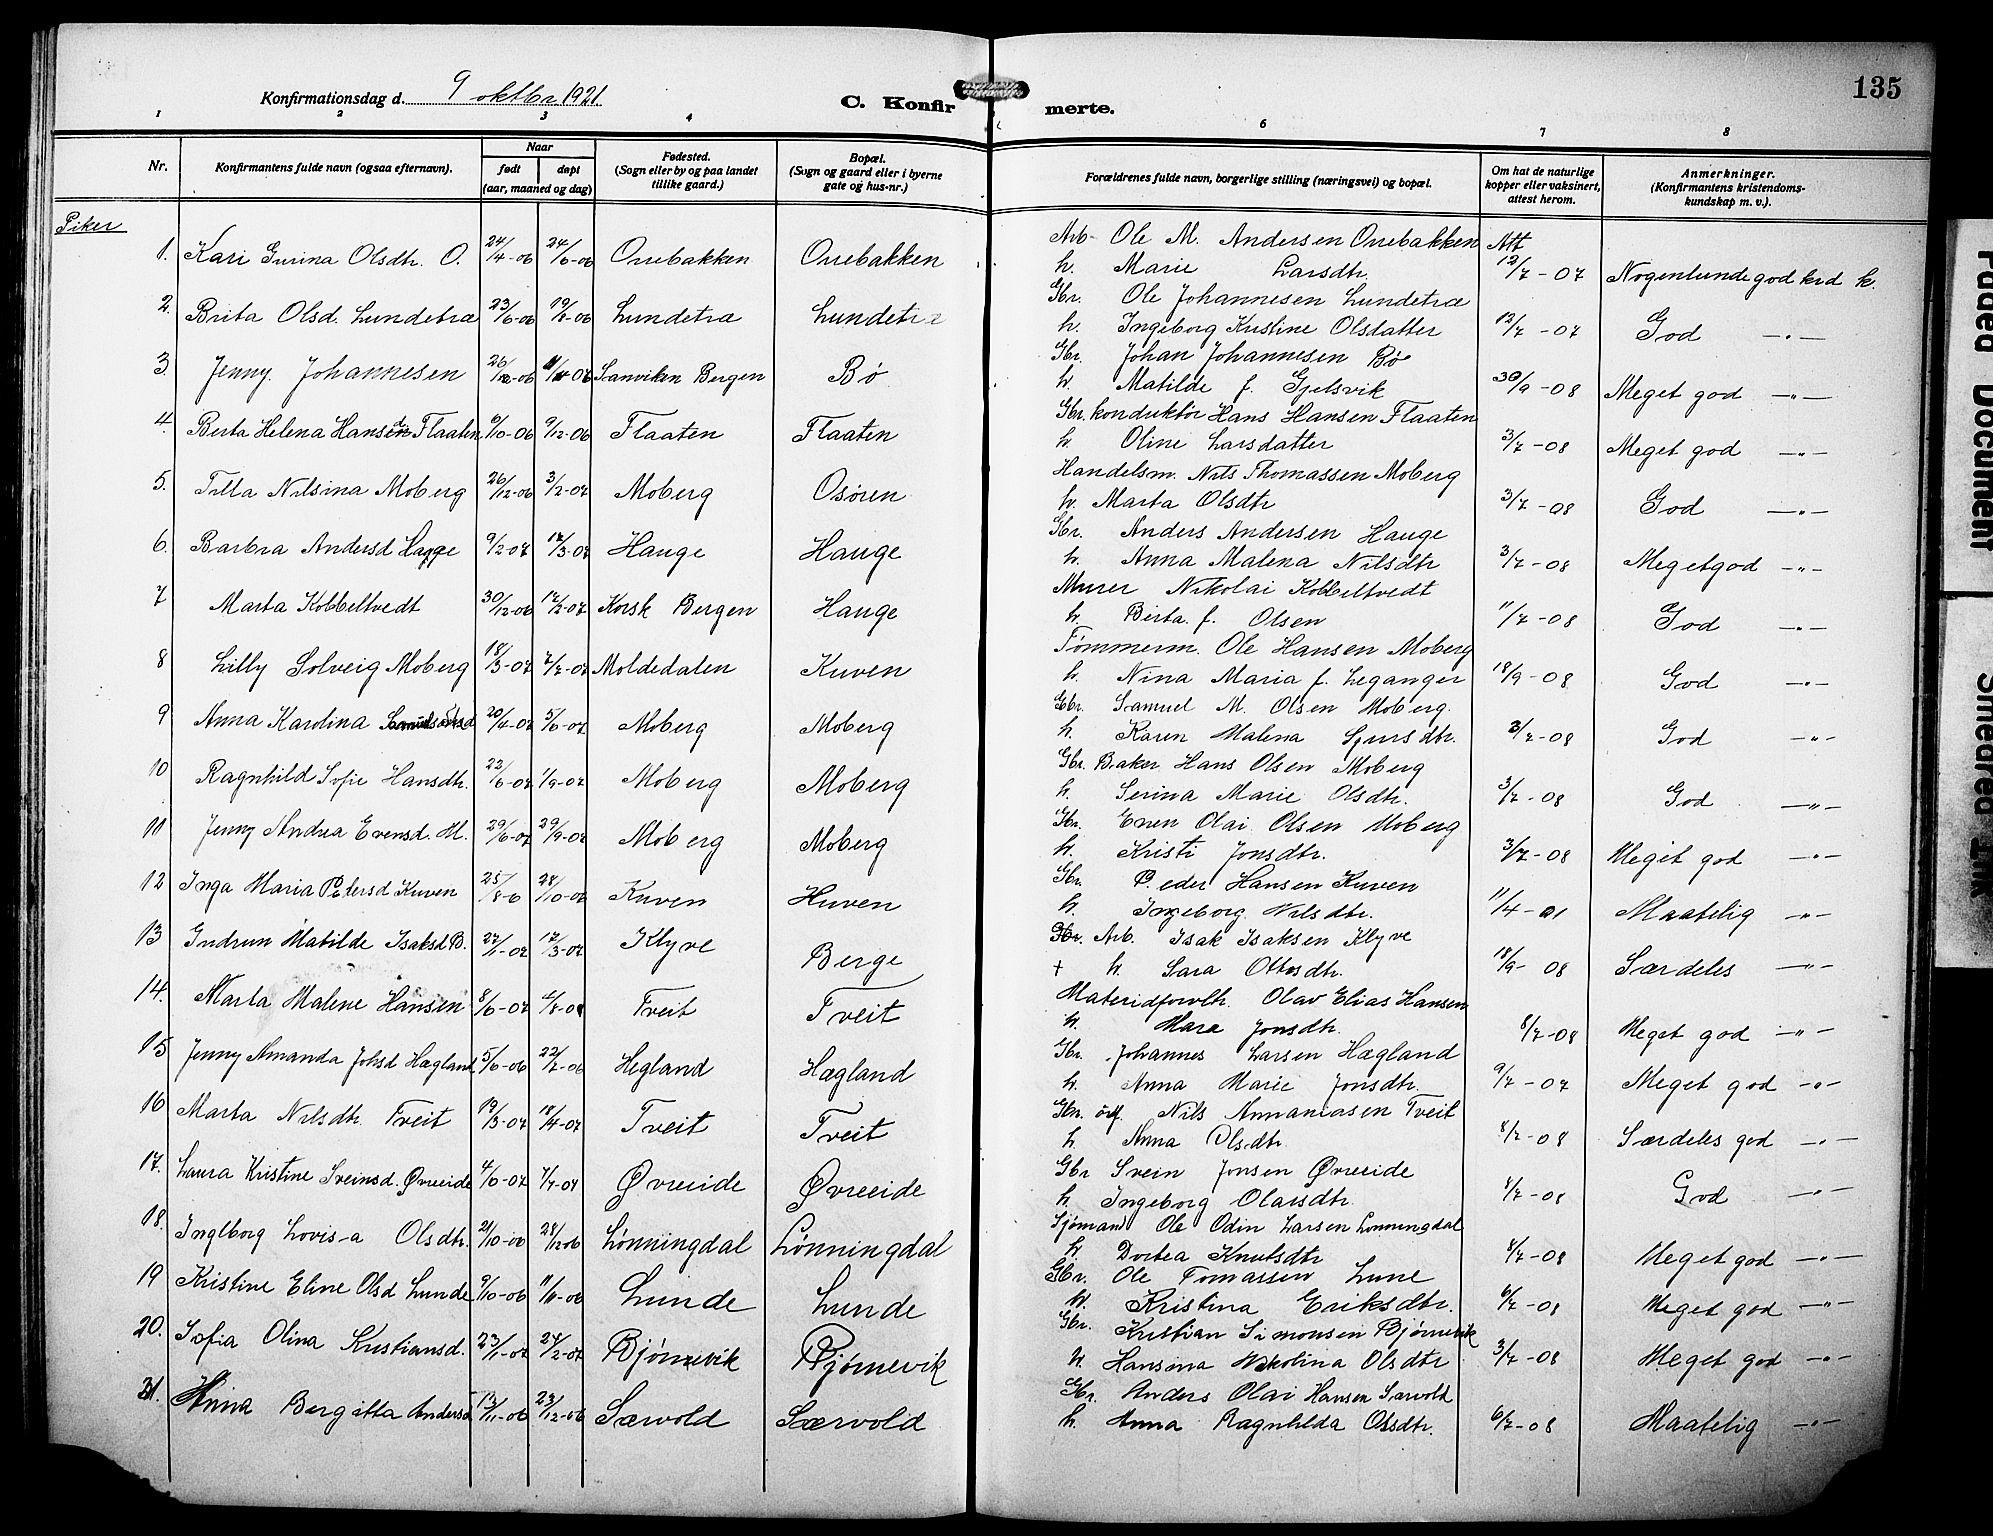 Konfirmationsdag d. 9 oktbr 1921.
C. Konfirmerte.
135
1 2 3 4 5 6 7 8
Nr.
Konfirmantens fulde navn (ogsaa efternavn).
Naar
født døpt
(aar, maaned og dag)
Fødested.
(Sogn eller by og paa landet tillike gaard.)
Bopæl.
(Sogn og gaard eller i byerne gate og hus-nr.)
Forældrenes fulde navn, borgerlige stilling (næringsvei) og bopæl.
Om hat de naturlige kopper eller vaksinert, attest herom.
Anmerkninger.
(Konfirmantens kristendoms-kundskap m. v.).
Piker
1. Kari Gurina Olsdtr. O. 24/4-06 24/6-06 Orrebakken Orrebakken Arb- Ole M. Andersen Orrebakken Att
h. Marie Larsdtr. 12/7-07 Nogenlunde god krd k.
2. Brita Olsd. Lundetræ 23/6-06 19/8-06 Lundetræ Lundetræ Gbr. Ole Johannesen Lundetræ
h. Ingeborg Kristine Olsdatter 12/7-07 God -"-
3. Jenny Johannesen Sanviken Bergen Bø Gbr. Johan Johannesen Bø
h. Matilde f. Gjelsvik 30/9-08 Meget god -"-
4. Berta Helena Hansen Flaaten 6/10-06 9/12-06 Flaaten Flaaten Gbr. konduktør Hans Hansen Flaaten
h. Oline Larsdatter 3/7-08 Meget god -"-
5. Tilla Nilsina Moberg 26/12-06 3/2-07 Moberg Osøren Handelsm. Nils Thomassen Moberg
h. Marta Olsdtr 3/7-08 God -"-
6. Barbra Andersd 9/2-07 17/3-07 Hauge Hauge Gbr. Anders Andersen Hauge
h. Anna Malena Nilsdtr 3/7-08 Megetgod -"-
7 Marta Kobbeltvedt 30/12-06 17/2-07 Korsk Bergen Hauge Murer Nikolai Kobbeltvedt
h. Berta f. Olsen 11/7-08 God -"-
8 Lilly Solveig Moberg 18/3-07 7/7-07 Moldedalen Kuven Tømmerm. Ole Hansen Moberg
h. Nina Maria f. Leganger 18/9-08 God -"-
9 Anna Karolina 20/4-07 5/6-07 Moberg Moberg Gbr. Samuel M. Olsen Moberg.
h. Karen Malena Sjursdtr. 3/7-08 God -"-
10 Ragnhild Sofie Hansdtr. 23/6-07 1/9-07 Moberg Moberg Gbr. Baker Hans Olsen Moberg
h. Serina Marie Olsdtr. 3/7-08 God -"-
11 Jenny Andrea Evensd. M. 29/6-07 29/9-07 Moberg Moberg Gbr. Even Olai Olsen Moberg
h. Kristi Jonsdtr. 3/7-08 Meget god -"-
12 Inga Maria Petersd Kuven 25/8-0 28/10-06 Kuven Huven Gbr. Peder Hansen Kuven
h. Ingeborg Nilsdtr. 11/4- Maatelig -"-
13 Gudrun Matilde Isaksd B. 27/1-07 17/3-07 Klyve Berge Gbr. Arb. Isak Isaksen Klyve
+ h. Sara Ottosdtr. 18/9-08 Særdeles -"-
14. Marta Malene Hansen 8/6-07 Tveit Tveit Olav Elias Hansen
h. Jonsdtr. 8/7-08 Meget god -"-
15 Jenny Amanda Johsd Hægland 5/6-06 22/7-06 Hegland Hægland Gbr. Johannes Larsen Hægland
h. Anna Marie Jonsdtr. 9/7-07 Meget god -"-
16 Marta Nilsdtr. Tveit 19/3-07 18/4-07 Tveit Tveit Gbr. Nils Annaniasen Tveit
h. Anna Olsdtr. 8/7-08 Særdeles god -"-
17. Laura Kristine Sveinsd. Øvreeide 4/6-07 7/7-07 Øvreeide Øvreeide Gbr Svein Jonsen Øvreeide
h. Ingeborg Olaisdtr. 8/7-08 God -"-
18. Ingeborg Lovis-a Olsdtr. 21/10-06 28/12-06 Lønningdal Lønningdal Sjømand Ole Odin Larsen Lønningdal
h Dortea Knutsdtr 8/7-08 Meget god -"-
19 Kristine Eline Olsd Lunde 9/10-06 11/11-06 Lunde Lunde Gbr. Ole Tomassen Lune
h. Kristina Eriksdtr. 6/7-08 Meget god -"-
20. Sofia Olina Kristiansd. 23/1-07 24/2-07 Bjørnevik Bjørnevik Gbr. Kristian Simonsen Bjørnevik
h. Hansina Nikolina Olsdtr 3/7-08 Meget god -"-
21. Anna Bergitta Andersd 13/11-06 23/12-06 Særvold Særvold Gbr. Anders Olai Hansen Særvold
h. Anna Ragnhilda Olsdtr. 6/7-08 Maatelig -"-
Faded Document
Smeared Ink